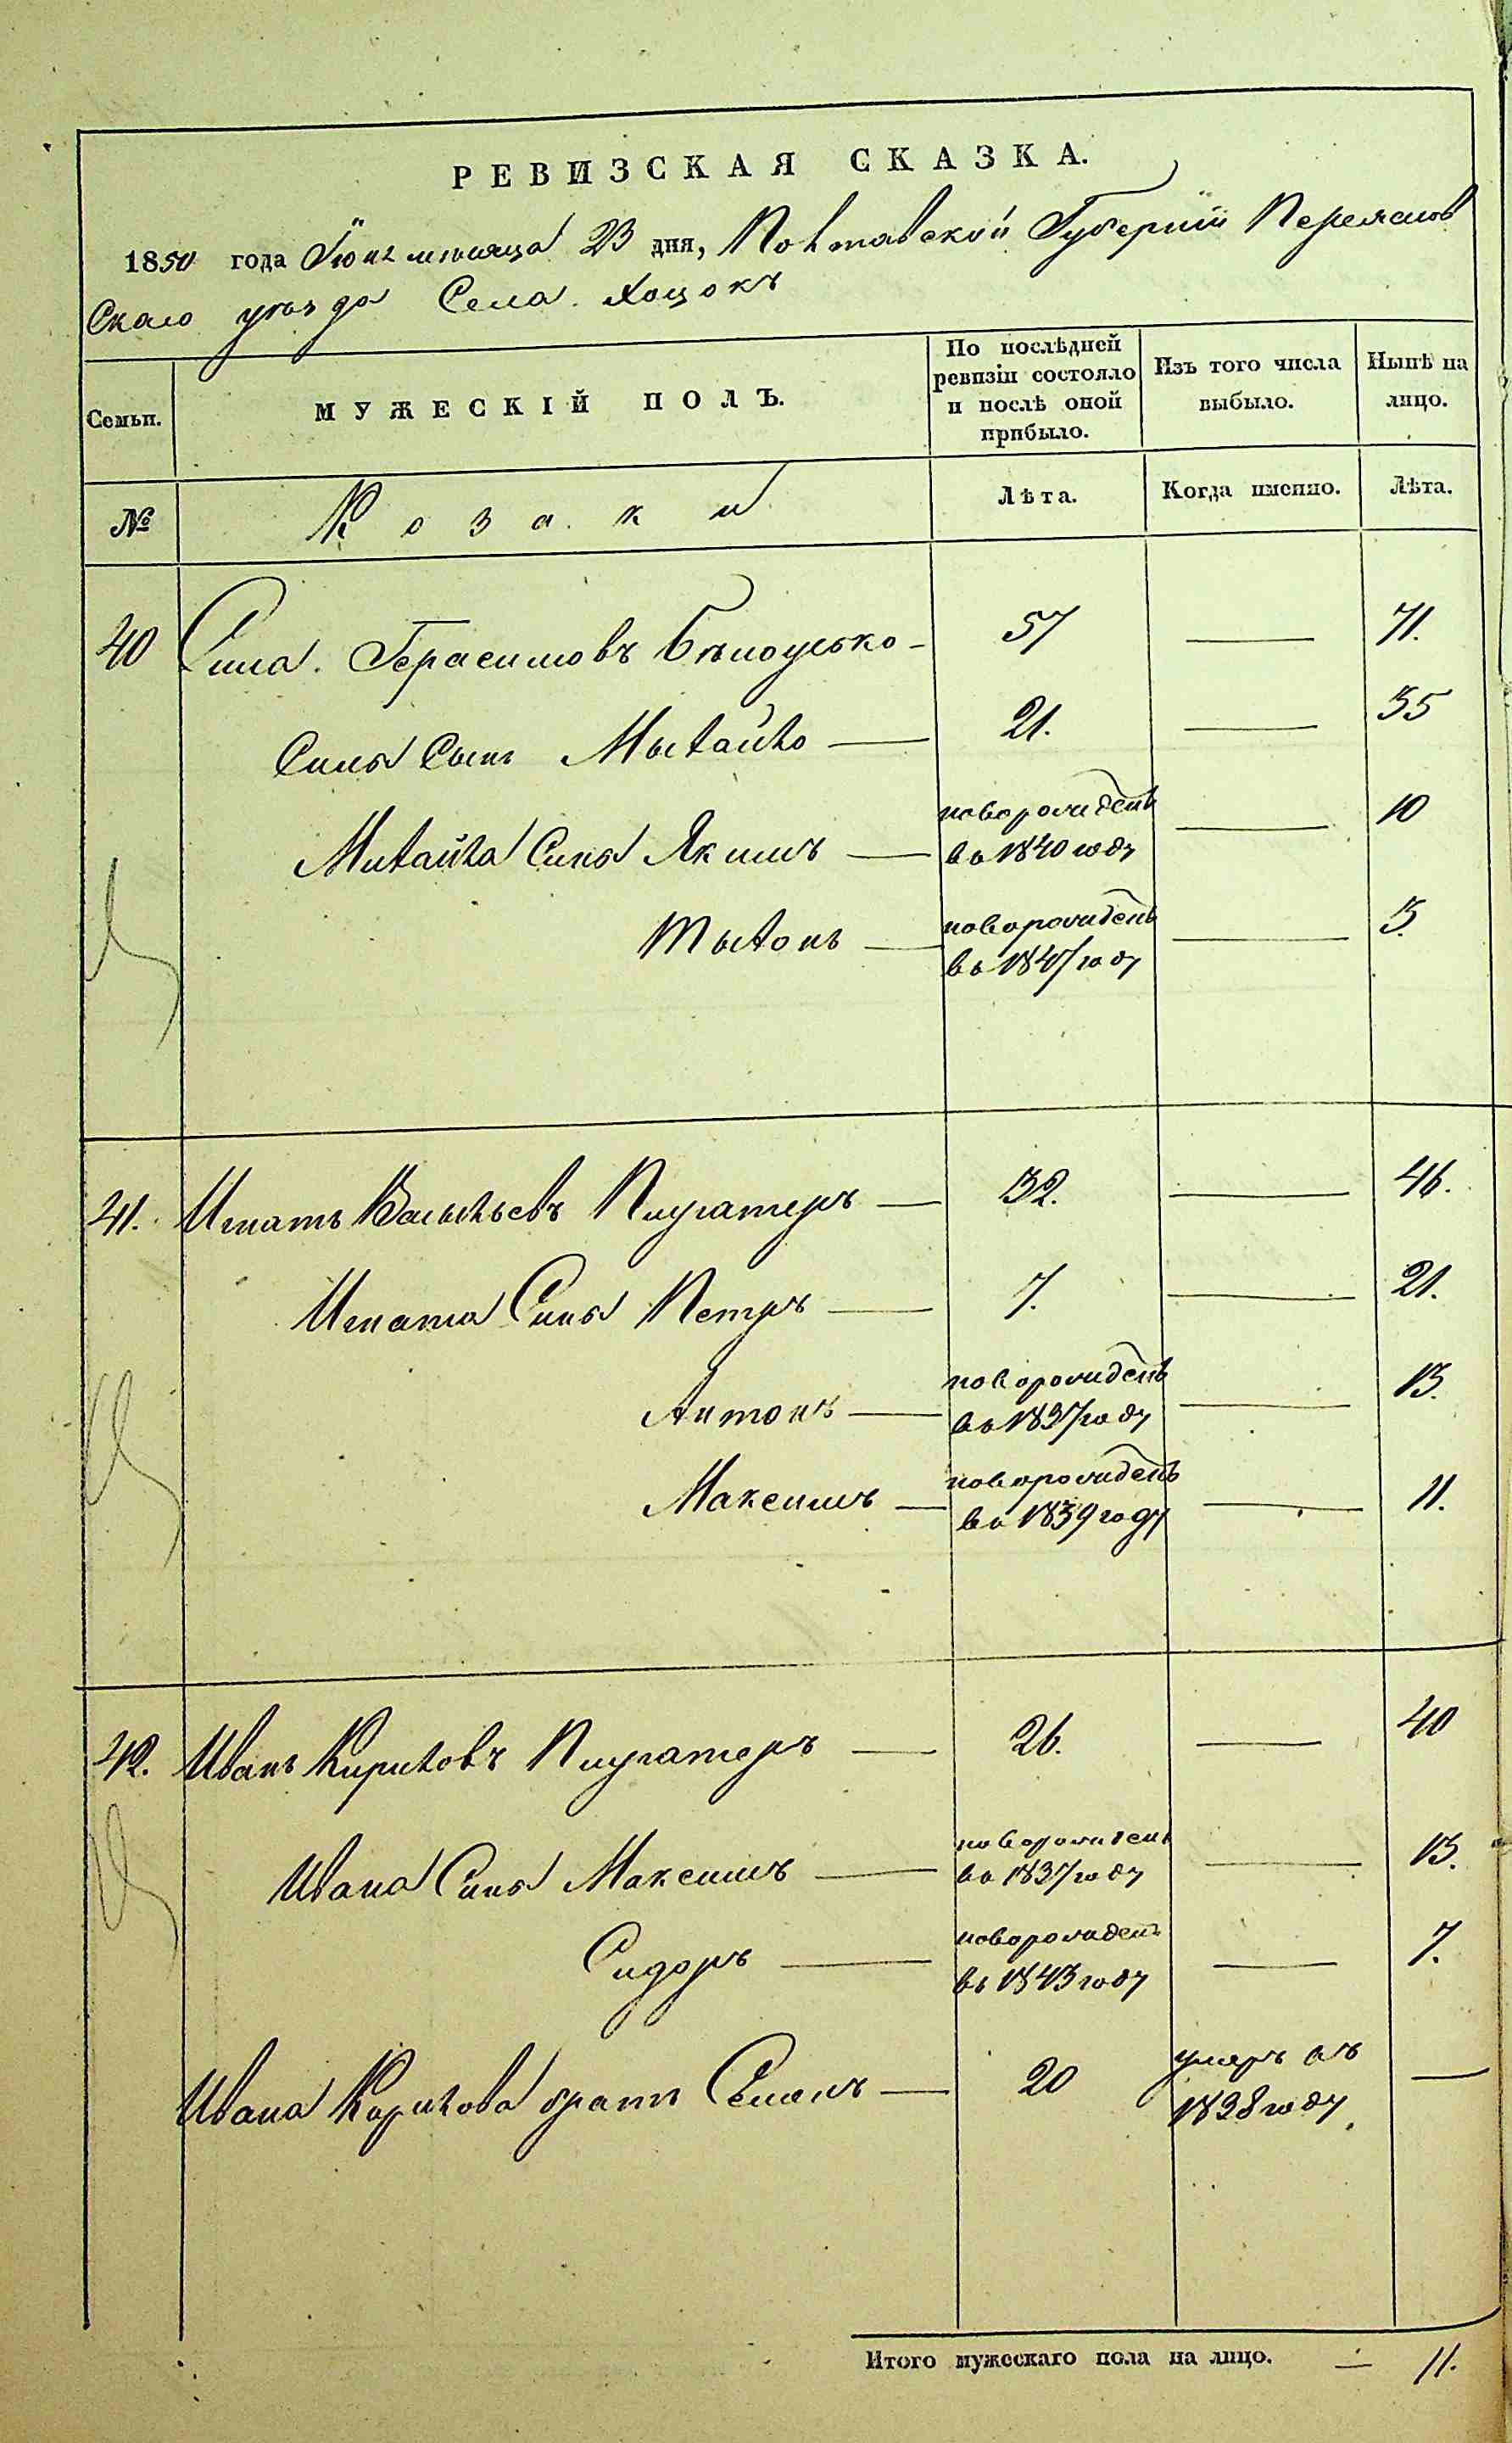 РЕВИЗСКАЯ СКАЗКА.
1850 года Іюня мѣсяца 23 дня, Полтавской Губерніи Переяслов
Скаго уѣзда Села Хоцокъ
Семьи.
МУЖЕСКІЙ ПОЛЪ.
По послѣдней ревизіи состояло и послѣ оной прибыло.
Изъ того числа выбыло.
Нынѣ на лицо.
№
Козаки
Лѣта.
Когда именно.
Лѣта.
40 Сила Герасимовъ Бѣлоусько — 57 — 71.
Силы Сынъ Михайло — 21. — 35
Михайла Сыны Якимъ — новорожденъ въ 1840 году — 10
Тыхонъ — новорожденъ въ 1847 году — 3.
41. Игнатъ Васильевъ Плугатеръ — 32. — 46.
Игната Сыны Петръ — 7. — 21.
Антонъ — новорожденъ въ 1837 году — 13.
Максимъ — новорожденъ въ 1839 году — 11.
42. Иванъ Кириловъ Плугатеръ — 26. — 40
Ивана Сыны Максимъ — новорожденъ въ 1837 году — 13.
Сидоръ — новорожденъ въ 1843 году — 7.
Ивана Кирилова братъ Семенъ — 20 умеръ въ 1838 году. —
Итого мужескаго пола на лицо. — 11.